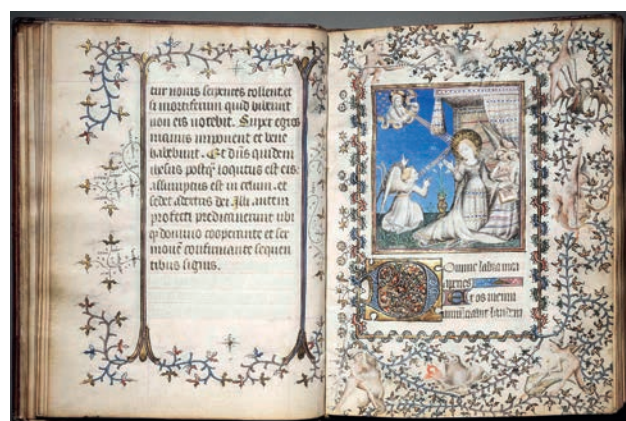 tur nouis serpentes tollent. et
si mortiferum quid biberint
non eis nocebit. Super egros
manus imponent et bene
habebunt. Et dns quidem
ihesus postq̃ locutus est eis.
assumptus est in celum. et
sedet a dextris dei. Illi autem
profecti predicauerunt ubi
q̃ domino cooperante et ser
monē confirmante sequen
tibus signis.
Domine labia mea
aperies
Et os meum
annunciabit laudem